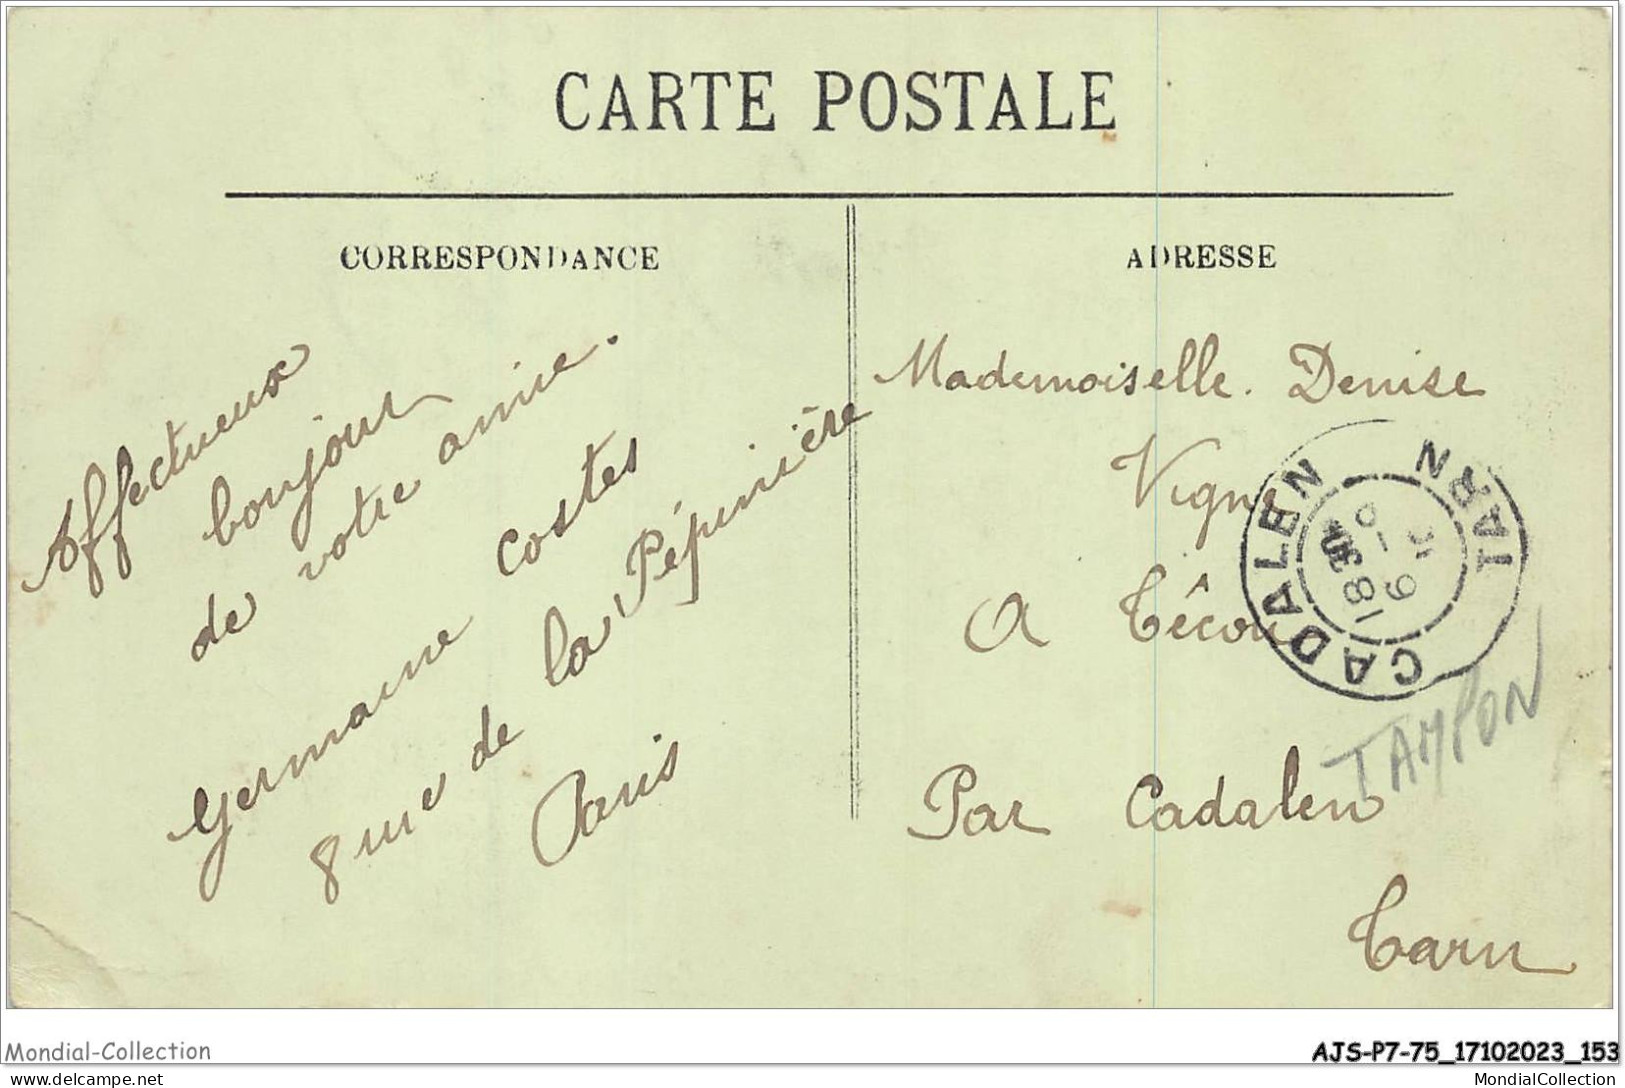 CARTE POSTALE
CORRESPONDANCE
Affectueux
bonjour
de votre amie.
Germaine Costes
8 rue de la Pépinière
Paris
ADRESSE
Mademoiselle. Denise
Vigne
A Técou
Par Cadalen
Tarn
CADALEN TARN
18 30
TAMPON
Mondial-Collection
AJS-P7-75_17102023_153
delcampe.net
MondialCollection